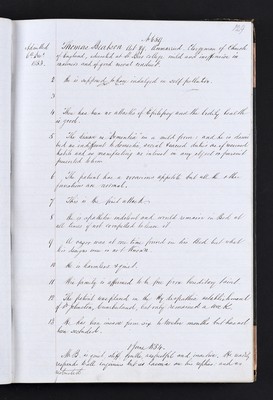 129
No 489
Admitted
6th Decr
1853.
Thomas Beatson Aet 29. Unmarried. Clergyman of Church
of England, educated at St Bees college mild and inoffensive in
manner and of good moral conduct.
2 He is supposed to have indulged in self pollution.
3
4 There has been no attacks of Epilepsy and the bodily health
is good.
5 The disease is Dementia in a mild form; and he is
but as indifferent to domestic, social duties or of
habits and as manifesting no interest in any object or pursuit
presented to him.
6 The patient has a voracious appetite but all the other
functions are normal.
7 This is the first attack.
8 He is apathetic indolent and would remain in bed at
all times if not compelled to leave it.
9 A razor was at one time found in his Bed but what
his design was is not known.
10 He is harmless & quiet.
11 His family is affirmed to be free from hereditary taint.
12 The patient was placed in the Hydropathic establishment
of Dr Johnston, but only remained a week.
13 He has been insane from six to twelve months but has not
been secluded.
1 June 1854.
Mr B. is quiet stiff, respectful and He readily
responds to all enquiries but is on his affairs and